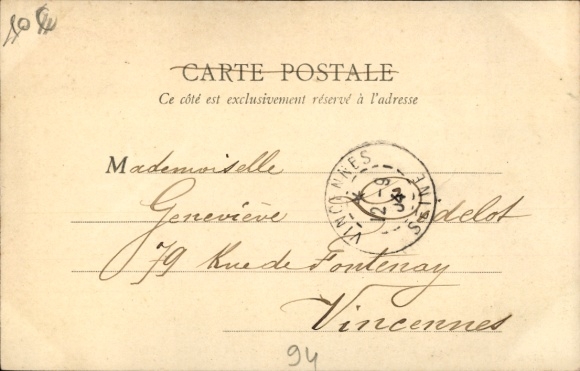 CARTE POSTALE
Ce côté est exclusivement réservé à l'adresse
Mademoiselle
Geneviève
79 Rue de Fontenay
Vincennes
VINCENNES
SEINE
94